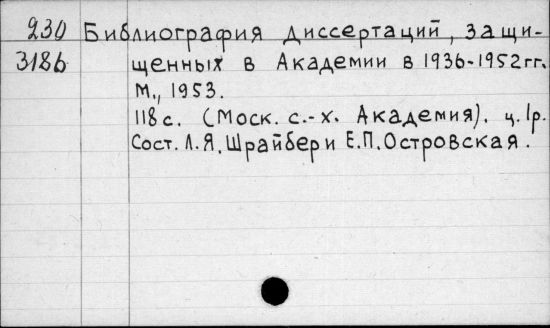 230 Библиография диссертаций, защи-
3186 щенных в Академии в 1936-1952гг.
М., 1953.
118 с. (Моск. с.-х. Академия). ц. 1р.
Сост. Л.Я. Шрайбер и Е.П. Островская.